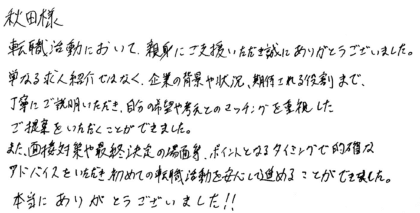 秋田様
転職活動において、親身にご支援いただき誠にありがとうございました。
単なる求人紹介ではなく、企業の背景や状況、期待される役割まで、
丁寧にご説明いただき、自分の希望や考えとのマッチングを重視した
ご提案をいただくことができました。
また、面接対策や最終決定の場面等、ポイントとなるタイミングで的確な
アドバイスをいただき初めての転職活動を安心して進めることができました。
本当にありがとうございました!!